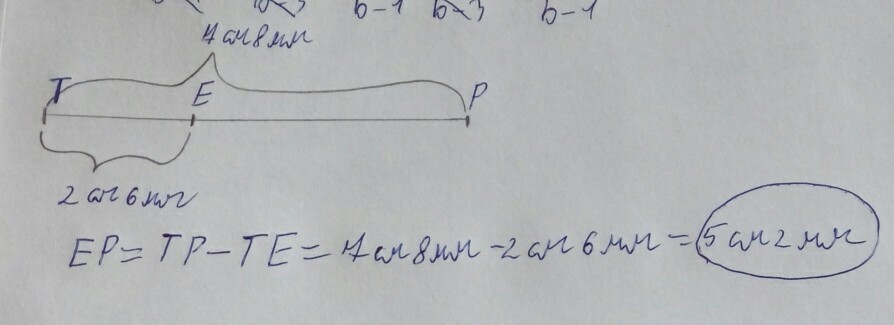 b-1 b-3 b-1
7 см 8 мм
T E P
2 см 6 мм
EP = TP - TE = 7 см 8 мм - 2 см 6 мм = 5 см 2 мм